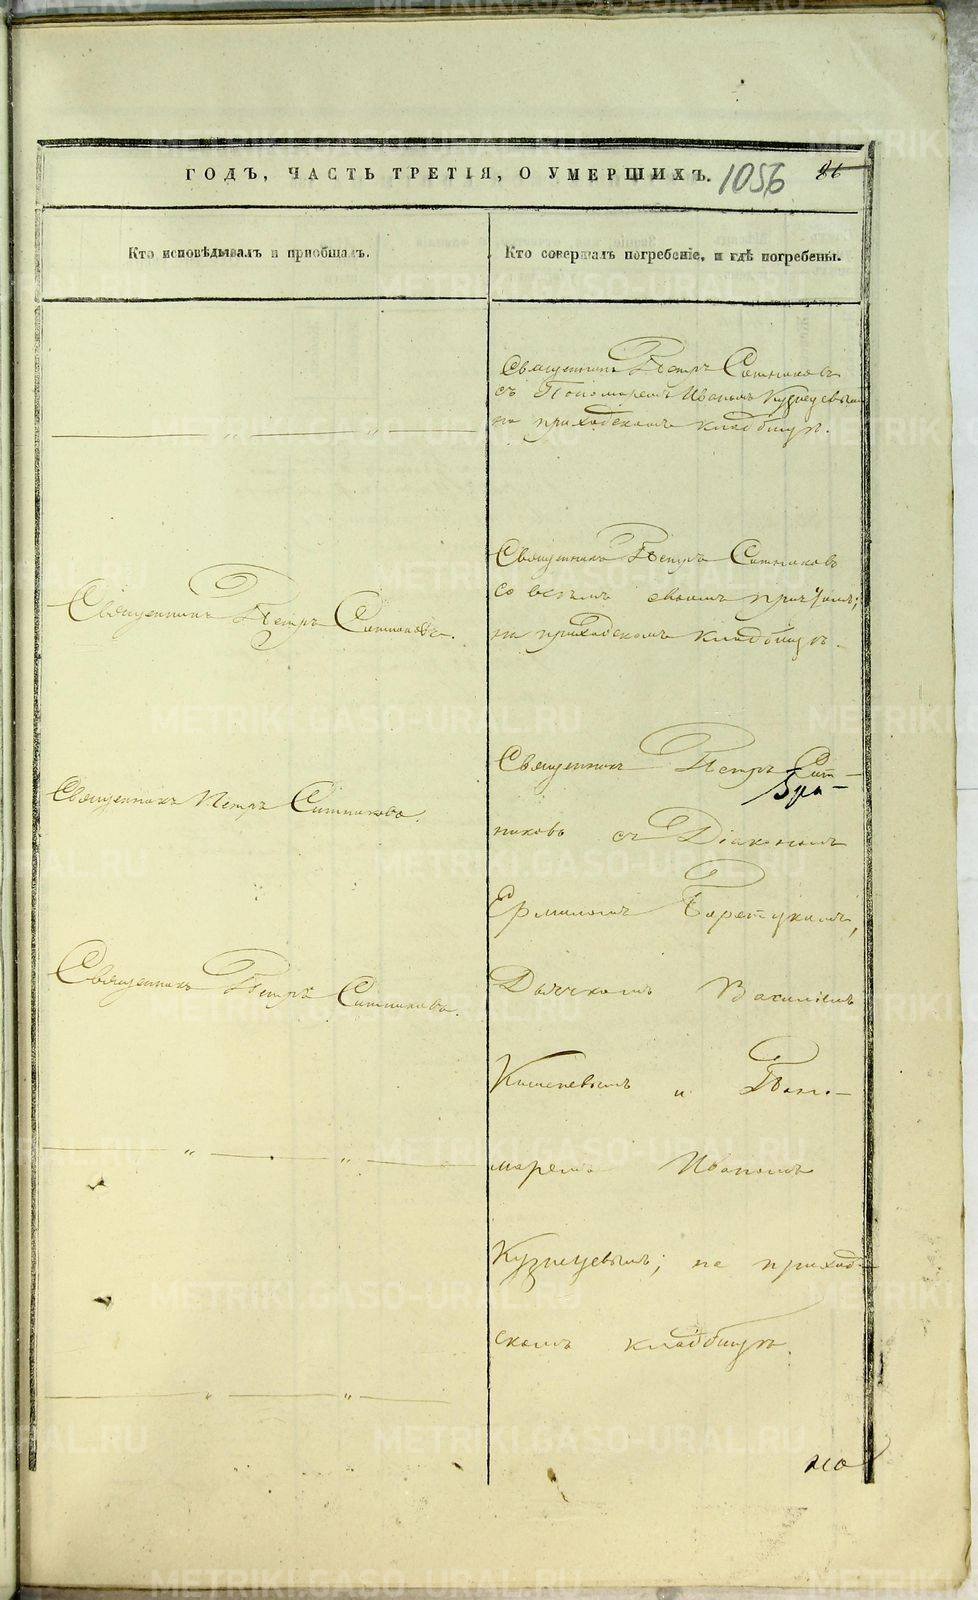 ГОДЪ, ЧАСТЬ ТРЕТІЯ, О УМЕРШИХЪ.
1056
86
Кто исповѣдывалъ и пріобщалъ.
Кто совершалъ погребеніе, и гдѣ погребены.
Священникъ Петръ Ситниковъ
съ Пономаремъ Иваномъ Кузнецевымъ
на приходскомъ кладбищѣ.
Священникъ Петръ Ситниковъ.
Священникъ Петръ Ситниковъ
со всѣмъ своимъ причтомъ;
на приходскомъ кладбищѣ.
Священникъ Петръ Ситниковъ.
Священникъ Петръ Сит-
никовъ съ Діакономъ
Ермиломъ
Священникъ Петръ Ситниковъ.
Дьячкомъ Василіемъ
и Поно-
маремъ Иваномъ
Кузнецевымъ; на приход-
скомъ кладбищѣ.
METRIKI.GASO-URAL.RU